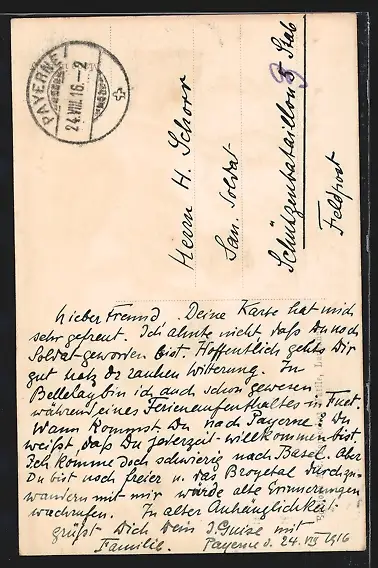 PAYERNE
24.VIII.16.-2
Herrn H. Schorr
San. Soldat
Schützenbataillon 5 Stab
Feldpost
Lieber Freund. Deine Karte hat mich
sehr gefreut. Ich ahnte nicht daß Du noch
Soldat geworden bist. Hoffentlich gehts Dir
gut trotz der rauhen Witterung. In
Bellelay bin ich auch schon gewesen
während eines Ferienaufenthaltes in Fuet.
Wann kommst Du nach Payerne? Du
weißt, daß Du jederzeit willkommen bist.
Ich komme doch schwierig nach Basel. Aber
Du bist noch freier u. das Broyetal durchzu-
wandern mit mir würde alte Erinnerungen
wachrufen. In alter Anhänglichkeit
grüßt Dich Dein J. Guise mit
Familie.
Payerne d. 24. VIII 1916